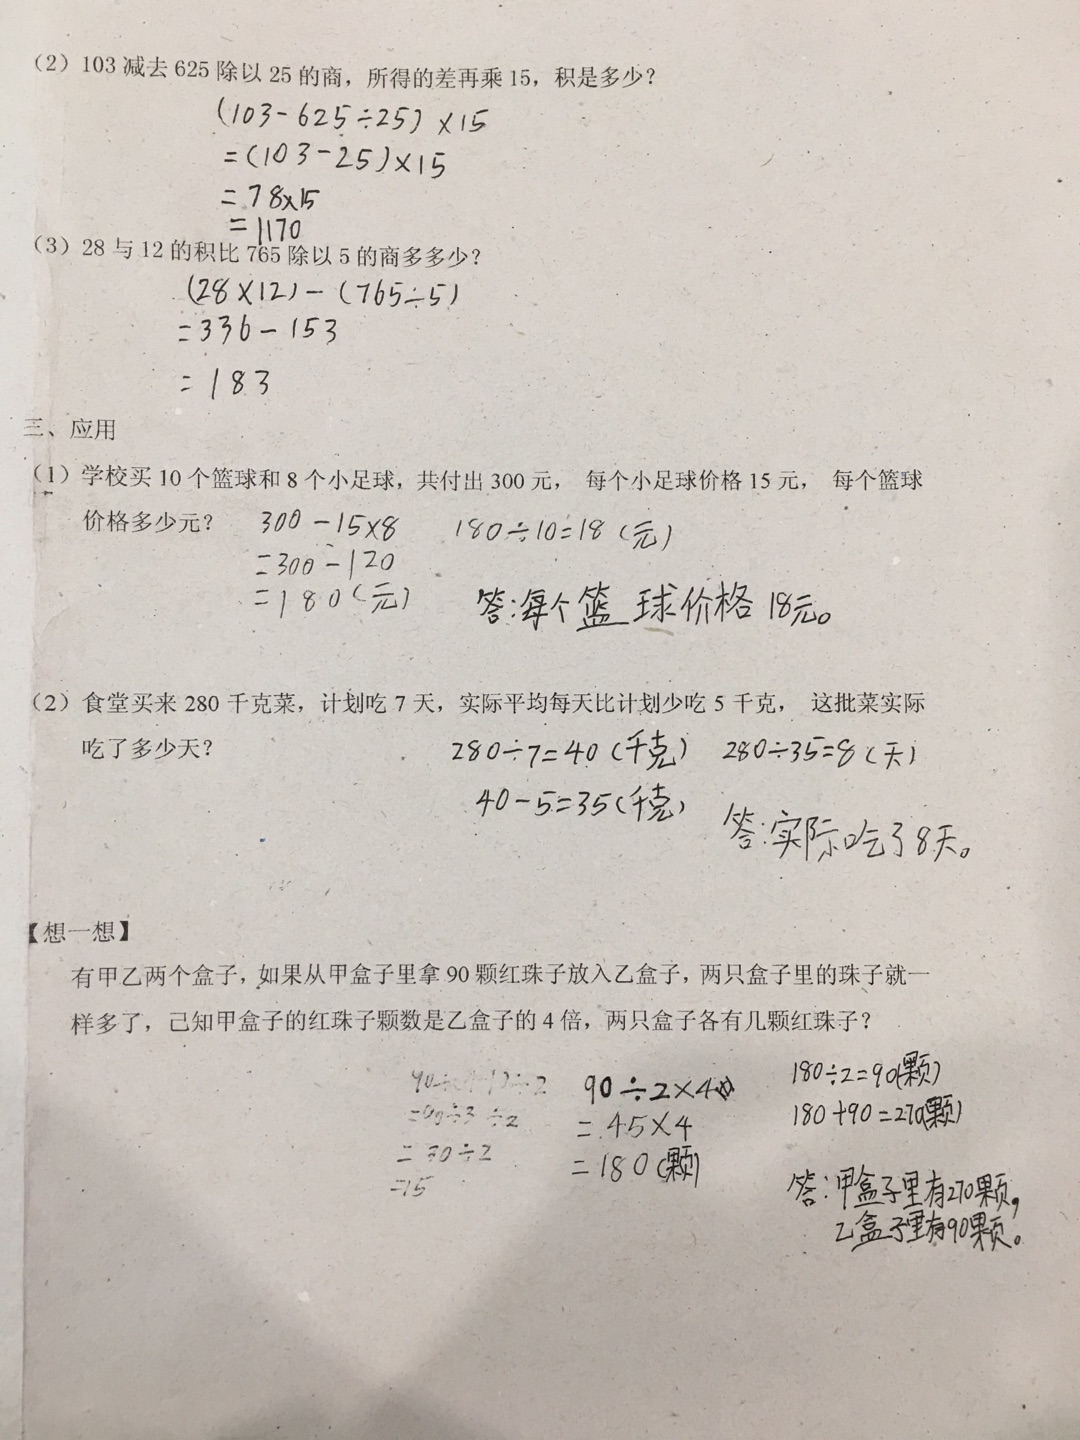 （2）103减去625除以25的商，所得的差再乘15，积是多少？
(103-625÷25)×15
=(103-25)×15
=78×15
=1170
（3）28与12的积比765除以5的商多多少？
(28×12)-(765÷5)
=336-153
=183
三、应用
（1）学校买10个篮球和8个小足球，共付出300元， 每个小足球价格15元， 每个篮球
价格多少元？ 300-15×8 180÷10=18（元）
=300-120
=180（元）
答:每个篮球价格18元。
（2）食堂买来280千克菜，计划吃7天，实际平均每天比计划少吃5千克， 这批菜实际
吃了多少天？ 280÷7=40（千克） 280÷35=8（天）
40-5=35（千克）
答:实际吃了8天。
【想一想】
有甲乙两个盒子，如果从甲盒子里拿90颗红珠子放入乙盒子，两只盒子里的珠子就一
样多了，己知甲盒子的红珠子颗数是乙盒子的4倍，两只盒子各有几颗红珠子？
=90÷3÷2
=30÷2
=15
90÷2×4
=45×4
=180（颗）
180÷2=90（颗）
180+90=270（颗）
答:甲盒子里有270颗，
乙盒子里有90颗。